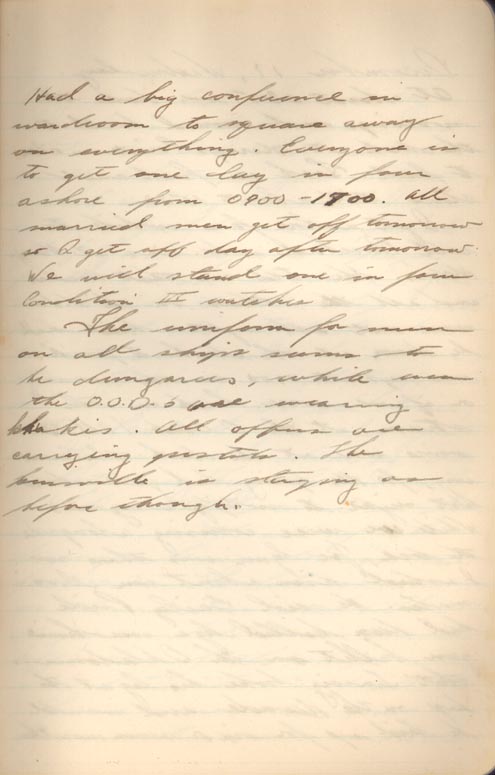 Had a big conference in
wardroom to square away
on everything. Everyone is
to get one day in four
ashore from 0900 - 1700. All
married men get off tomorrow
so I get off day after tomorrow.
We will stand one in four
Condition III watches
The uniform for men
on all ships seems to
be dungarees, while even
the O.O.D.s are wearing
khakis. All officers are
carrying pistols. The
is staying as
before though.